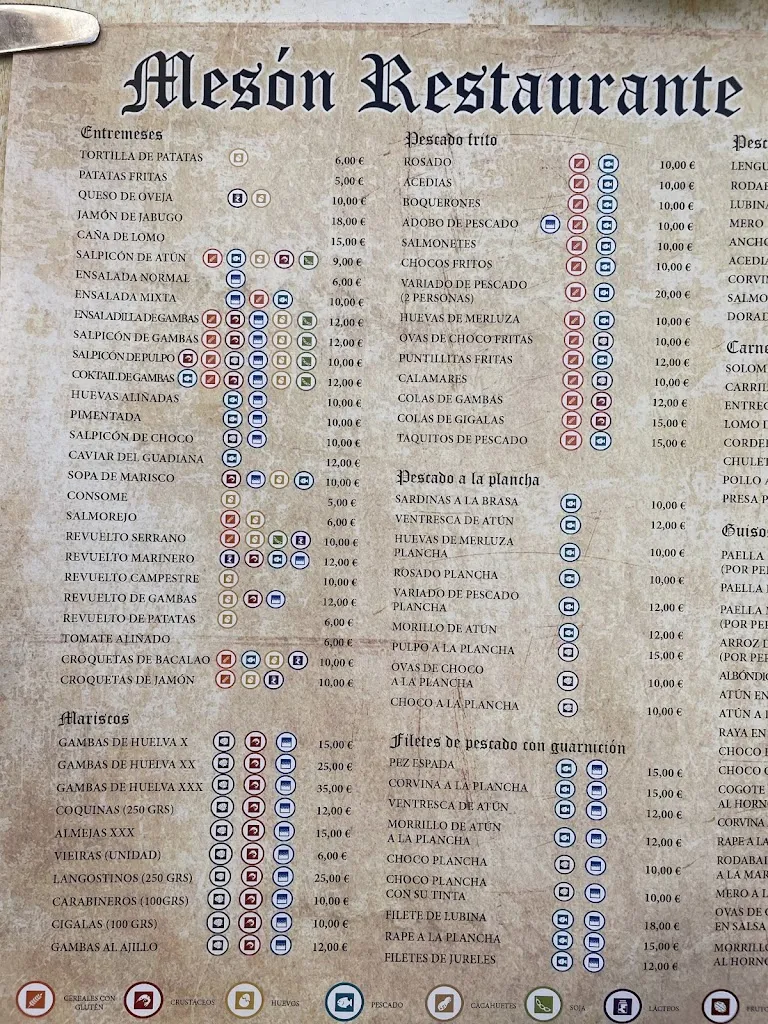 Mesón Restaurante
Entremeses
TORTILLA DE PATATAS 6,00 €
PATATAS FRITAS 5,00 €
QUESO DE OVEJA 10,00 €
JAMÓN DE JABUGO 18,00 €
CAÑA DE LOMO 15,00 €
SALPICÓN DE ATÚN 9,00 €
ENSALADA NORMAL 6,00 €
ENSALADA MIXTA 10,00 €
ENSALADILLA DE GAMBAS 12,00 €
SALPICÓN DE GAMBAS 12,00 €
SALPICÓN DE PULPO 10,00 €
COKTAIL DE GAMBAS 12,00 €
HUEVAS ALIÑADAS 10,00 €
PIMENTADA 10,00 €
SALPICÓN DE CHOCO 10,00 €
CAVIAR DEL GUADIANA 12,00 €
SOPA DE MARISCO 10,00 €
CONSOME 5,00 €
SALMOREJO 6,00 €
REVUELTO SERRANO 10,00 €
REVUELTO MARINERO 12,00 €
REVUELTO CAMPESTRE 10,00 €
REVUELTO DE GAMBAS 12,00 €
REVUELTO DE PATATAS 6,00 €
TOMATE ALIÑADO 6,00 €
CROQUETAS DE BACALAO 10,00 €
CROQUETAS DE JAMÓN 10,00 €
Mariscos
GAMBAS DE HUELVA X 15,00 €
GAMBAS DE HUELVA XX 25,00 €
GAMBAS DE HUELVA XXX 35,00 €
COQUINAS (250 GRS) 12,00 €
ALMEJAS XXX 15,00 €
VIEIRAS (UNIDAD) 6,00 €
LANGOSTINOS (250 GRS) 25,00 €
CARABINEROS (100GRS) 10,00 €
CIGALAS (100 GRS) 10,00 €
GAMBAS AL AJILLO 12,00 €
Pescado frito
ROSADO 10,00 €
ACEDIAS 10,00 €
BOQUERONES 10,00 €
ADOBO DE PESCADO 10,00 €
SALMONETES 10,00 €
CHOCOS FRITOS 10,00 €
VARIADO DE PESCADO
(2 PERSONAS) 20,00 €
HUEVAS DE MERLUZA 10,00 €
OVAS DE CHOCO FRITAS 10,00 €
PUNTILLITAS FRITAS 12,00 €
CALAMARES 10,00 €
COLAS DE GAMBAS 12,00 €
COLAS DE GIGALAS 15,00 €
TAQUITOS DE PESCADO 15,00 €
Pescado a la plancha
SARDINAS A LA BRASA 10,00 €
VENTRESCA DE ATÚN 12,00 €
HUEVAS DE MERLUZA
PLANCHA 10,00 €
ROSADO PLANCHA 10,00 €
VARIADO DE PESCADO
PLANCHA 12,00 €
MORILLO DE ATÚN 12,00 €
PULPO A LA PLANCHA 15,00 €
OVAS DE CHOCO
A LA PLANCHA 10,00 €
CHOCO A LA PLANCHA 10,00 €
Filetes de pescado con guarnición
PEZ ESPADA 15,00 €
CORVINA A LA PLANCHA 15,00 €
VENTRESCA DE ATÚN 12,00 €
MORRILLO DE ATÚN
A LA PLANCHA 12,00 €
CHOCO PLANCHA 10,00 €
CHOCO PLANCHA
CON SU TINTA 10,00 €
FILETE DE LUBINA 18,00 €
RAPE A LA PLANCHA 15,00 €
FILETES DE JURELES 12,00 €
Pesc
LENGU
RODAB
LUBINA
MERO
ANCHO
ACEDIA
CORVIN
SALMO
DORAD
Carne
SOLOM
CARRIL
ENTREC
LOMO D
CORDER
CHULET
POLLO A
PRESA P
Guiso
PAELLA
(POR PER
PAELLA
PAELLA
(POR PER
ARROZ
(POR PER
ALBÓNDIG
ATÚN EN
ATÚN A L
RAYA EN
CHOCO
CHOCO
COGOTE
AL HORNO
CORVINA
RAPE A LA
RODABAL
A LA MAR
MERO A L
OVAS DE
EN SALSA
MORRILLO
AL HORNO
CEREALES CON GLUTÉN
CRUSTÁCEOS
HUEVOS
PESCADO
CACAHUETES
SOJA
LÁCTEOS
FRUTO